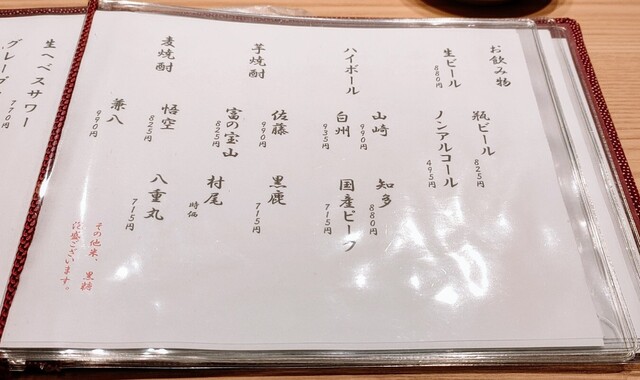 お飲み物
生ビール
880円
瓶ビール
825円
ノンアルコール
495円
ハイボール
山崎
990円
知多
880円
白州
935円
国産ピーフ
715円
芋焼酎
佐藤
990円
黒鹿
715円
富の宝山
825円
村尾
時価
麦焼酎
悟空
825円
八重丸
715円
兼八
990円
その他米、黒糖
花盛ございます。
生ヘベスサワー
770円
グレープ